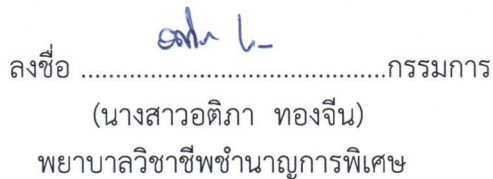 ลงชื่อ ............................................กรรมการ
(นางสาวอติภา ทองจีน)
พยาบาลวิชาชีพชำนาญการพิเศษ